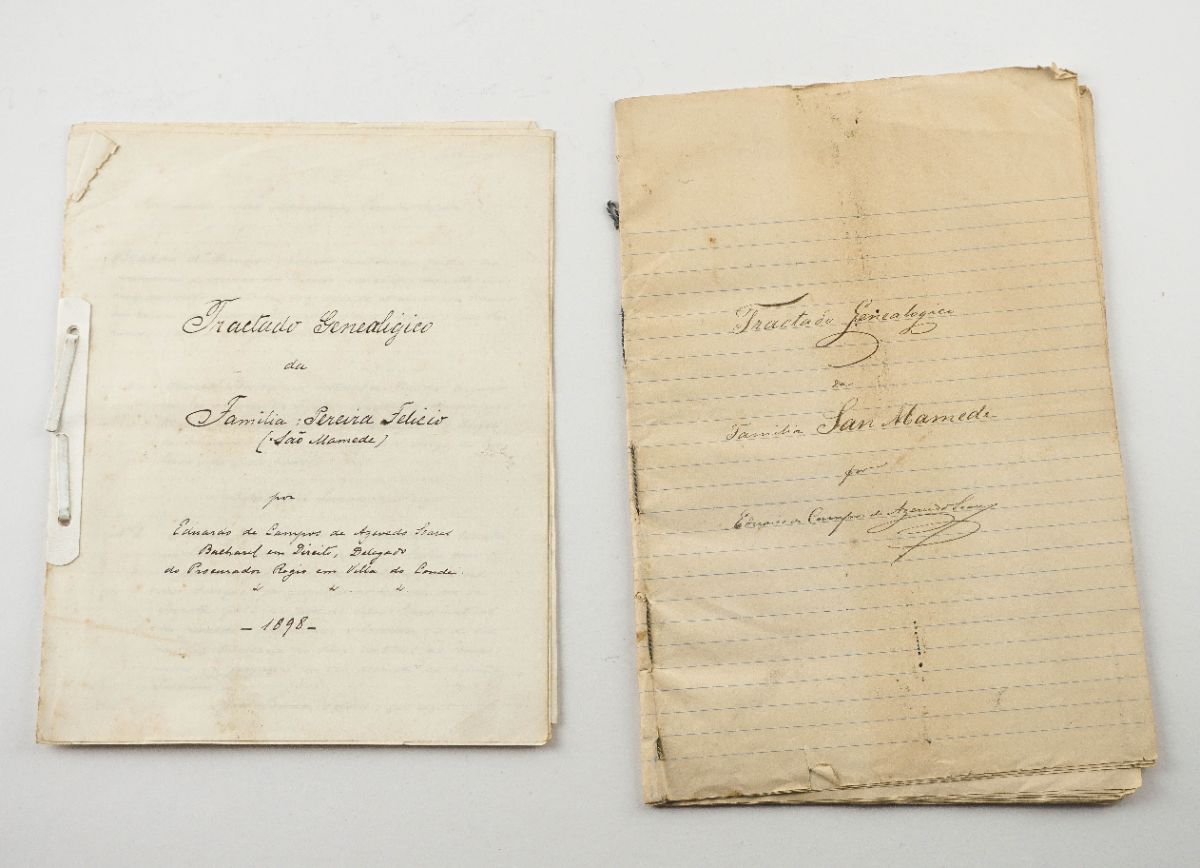 Tractado Genealigico
da
Familia: Pereira Felicio
(São Mamede)
por
Eduardo de Campos de Azevedo Soares
Bacharel em Direito, Delegado
do Procurador Regio em Villa do Conde.
- 1898 -
Tractado Genealogico
da
Familia San Mamede
por
Eduardo de Campos de Azevedo Soares